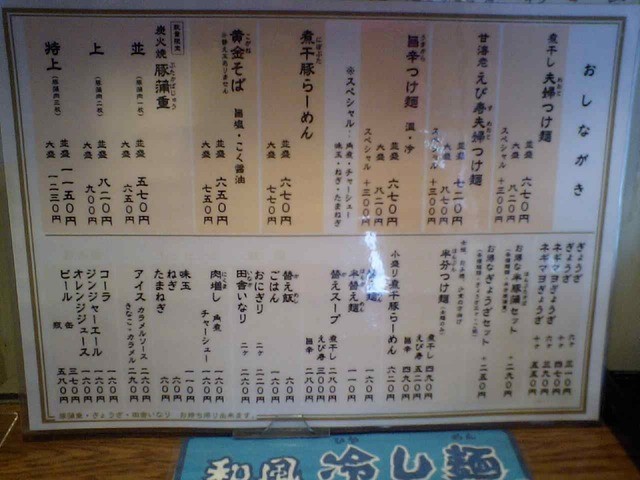 おしながき
煮干し夫婦つけ麺
並盛 六七〇円
大盛 八二〇円
スペシャル +三〇〇円
甘海老えび寿夫婦つけ麺
並盛 七二〇円
大盛 八七〇円
スペシャル +三〇〇円
旨辛つけ麺 温・冷
並盛 六七〇円
大盛 八二〇円
スペシャル +三〇〇円
※スペシャル:角煮・チャーシュー
味玉・ねぎ・たまねぎ
煮干豚らーめん
並盛 六七〇円
大盛 七七〇円
黄金そば 旨塩・こく醤油
並盛 六五〇円
大盛 七五〇円
数量限定
炭火焼 豚蒲重
並 (豚蒲肉一枚)
並盛 五七〇円
大盛 六五〇円
上 (豚蒲肉二枚)
並盛 八二〇円
大盛 九〇〇円
特上 (豚蒲肉三枚)
並盛 一一五〇円
大盛 一二三〇円
ぎょうざ 六ヶ 三一〇円
ネギマヨぎょうざ 十ヶ 四七〇円
お得な半豚蒲セット +二九〇円
お得なぎょうざセット +二五〇円
半分つけ麺
煮干し 四九〇円
えび寿 五二〇円
旨辛 四九〇円
小盛り煮干豚らーめん 六二〇円
替え麺 一六〇円
半替え麺 一一〇円
替えスープ
煮干し 二八〇円
えび寿 三〇〇円
旨辛 二八〇円
替え飯 一六〇円
ごはん 一六〇円
おにぎり 二ヶ 二二〇円
田舎いなり 二ヶ 二六〇円
肉増し 角煮 一六〇円
チャーシュー 一六〇円
味玉 一一〇円
ねぎ 一六〇円
たまねぎ 一六〇円
アイス カラメルソース 二六〇円
きなこ・カラメル 二九〇円
コーラ 一六〇円
ジンジャーエール 一六〇円
オレンジジュース 一六〇円
ビール 缶 三七〇円
瓶 五八〇円
豚蒲重・ぎょうざ・田舎いなり お持ち帰り出来ます。
和風 冷し麺